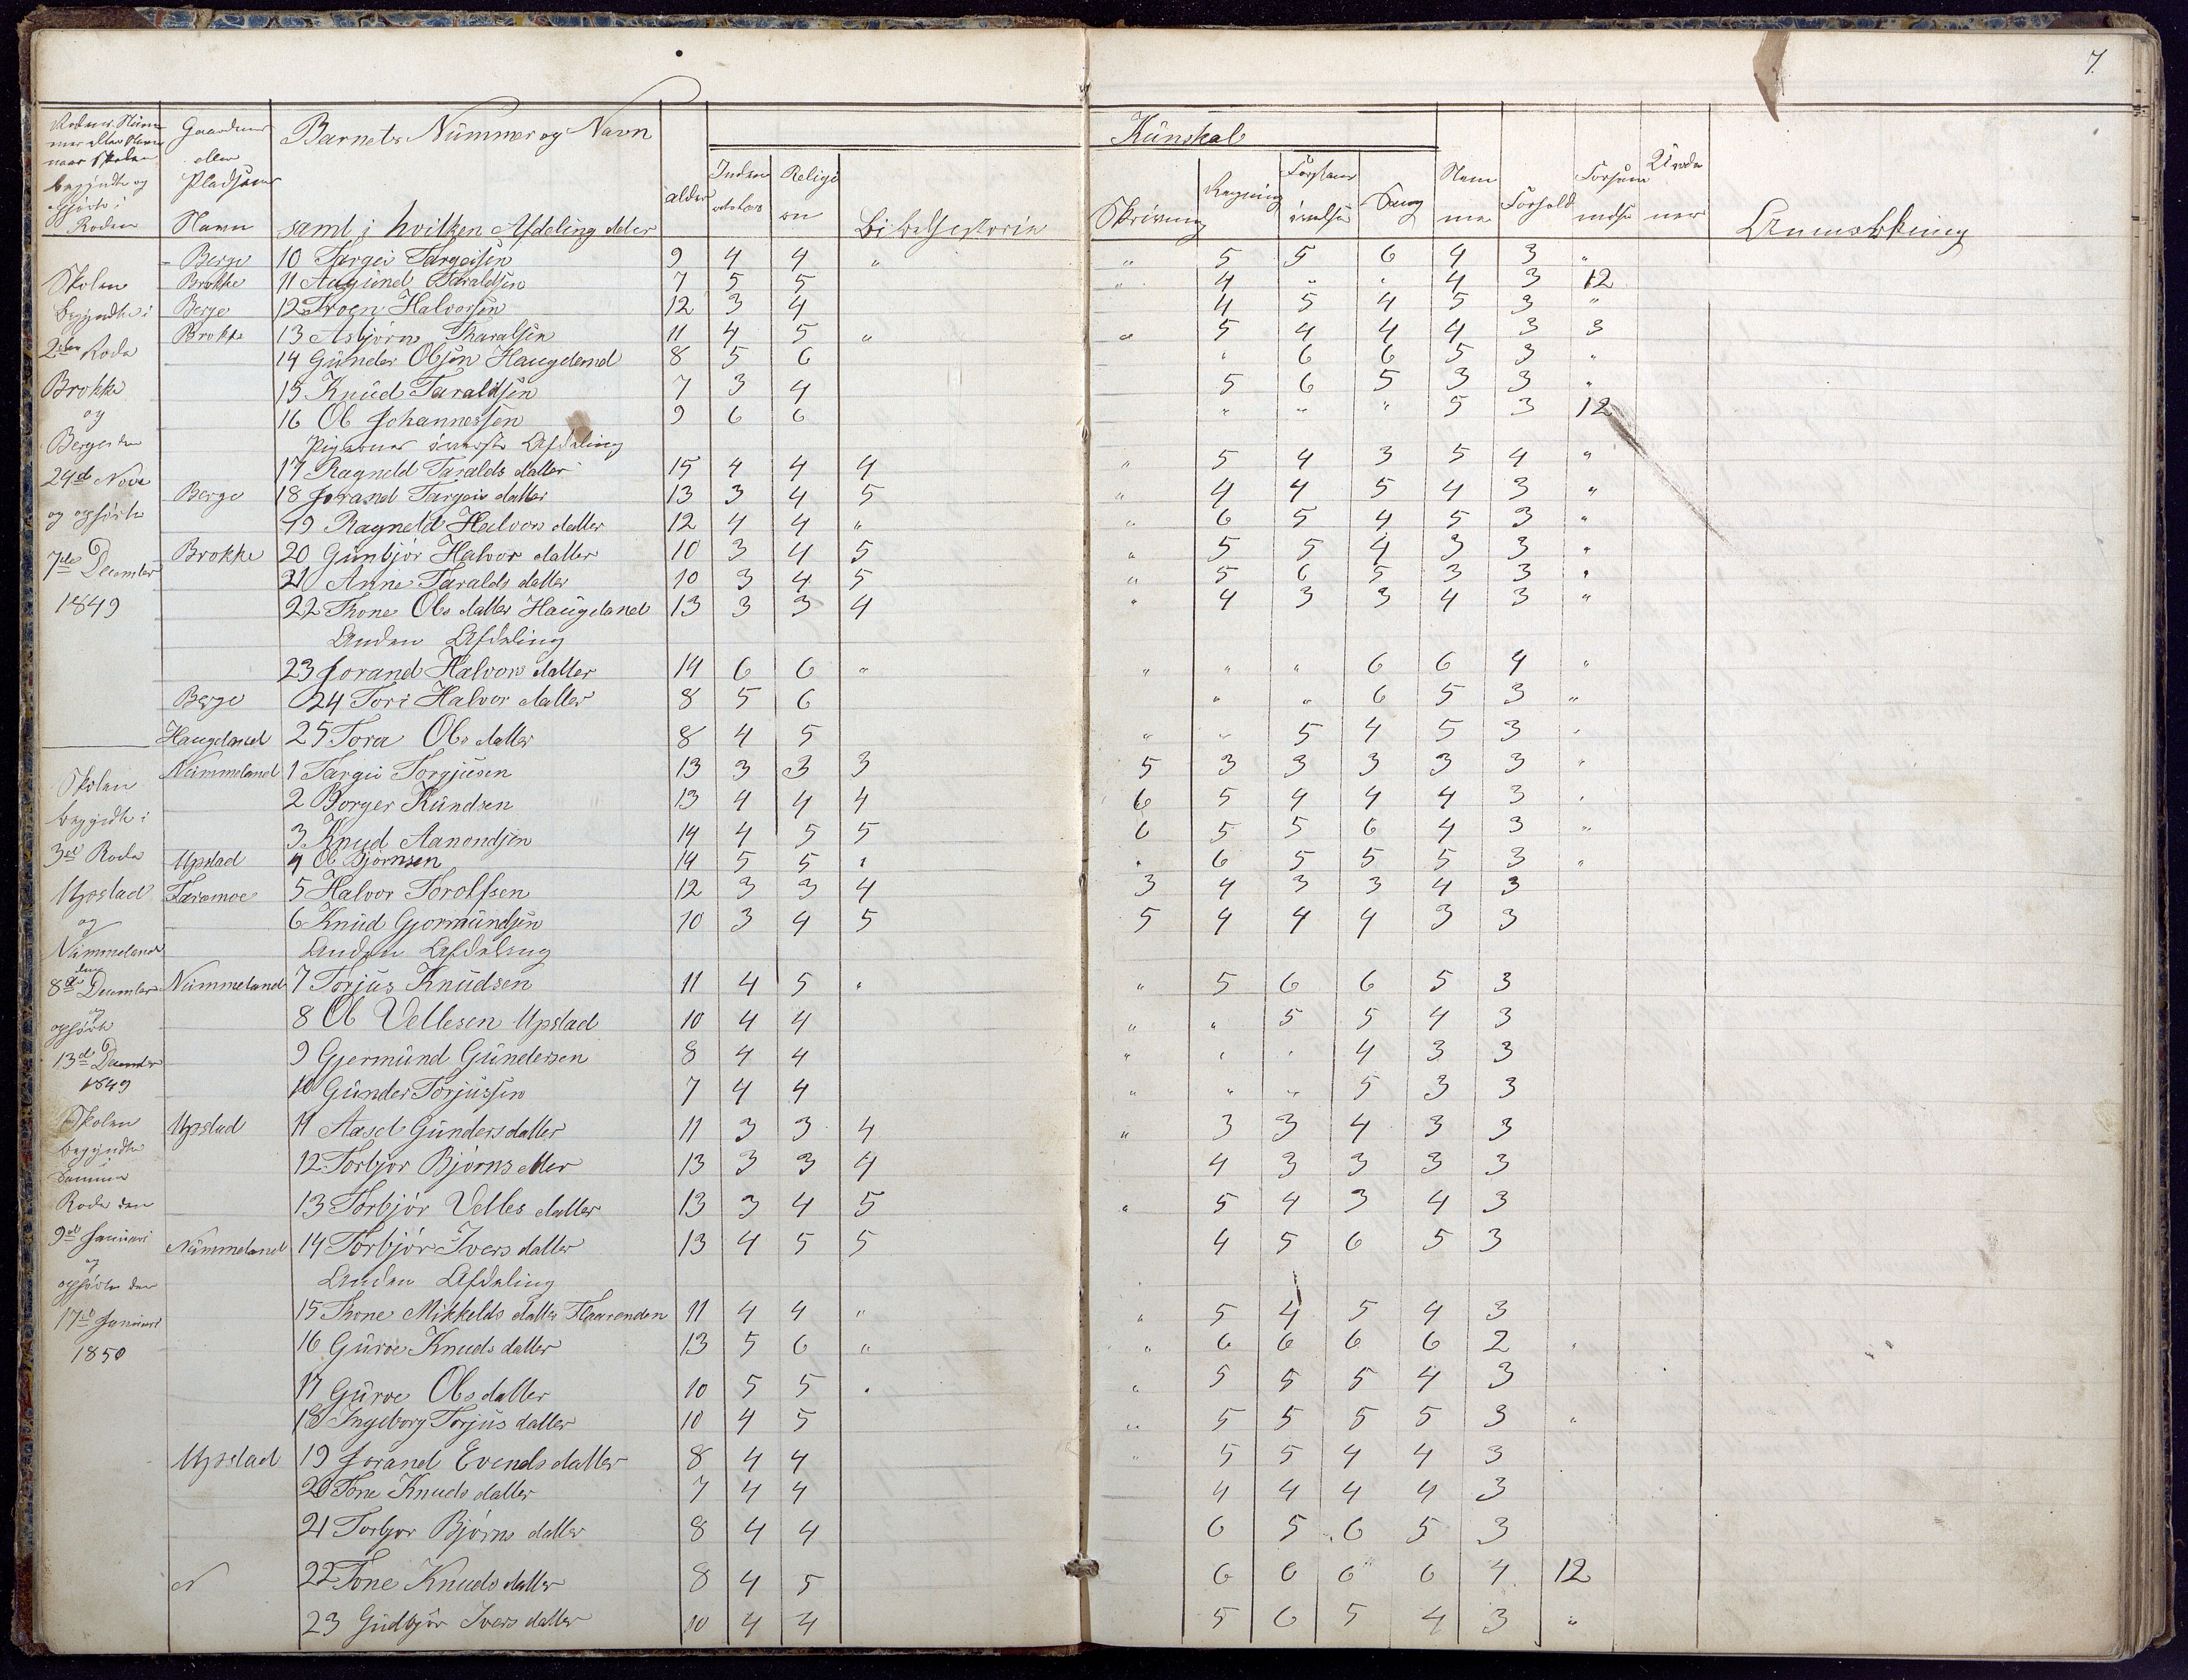 7.
Rodens Num
mer eller Navn
naar Skolen
begyndte og
i
Roden
Gaardens
eller
Pladsens
Navn
Barnets Nummer og Navn
samt i hvilken Afdeling eller
alder
Inden
Religi
on
Bibelhistorie
Kunskab
Skrivning
Regning
Forstans
øvelse
Sang
Nem
me
Forhold
Forsøm
melse
Anmærkning
Skolen
begyndte i
2den Rode
Brokke
og
Berge den
29d Nove
og ophørte
7de December
1849
Berge 10 Targei Targeisen 9 4 4 " " 5 5 6 4 3 "
Brokke 11 Aagund Taraldsen 7 5 5 " 4 " " 4 3 12
Berge 12 Troen Halvorsen 12 3 4 4 5 4 5 3 "
Brokke 13 Asbjørn Tharalsen 11 4 5 " " 5 4 4 4 3 3
14 Gunder Olsen Haugeland 8 5 6 " 6 6 5 3 "
15 Knud Taraldsen 7 3 4 5 6 5 3 3 "
16 Ol Johannessen 9 6 6 " " " 5 3 12
Pigernes øverste Afdeling
17 Ragneld Taralds datter 15 4 4 4 " 5 4 3 5 4 "
Berge 18 Jorand Targeis datter 13 3 4 5 " 4 4 5 4 3 "
19 Ragneld Halvors datter 12 4 4 " " 6 5 4 5 3 "
Brokke 20 Gunbjør Halvor datter 10 3 4 5 " 5 5 4 3 3 "
21 Anne Taralds datter 10 3 4 5 " 5 6 5 3 3 "
22 Thone Ols datter Haugeland 13 3 3 4 " 4 3 3 4 3 "
Anden Afdeling
23 Jorand Halvors datter 14 6 6 " " " " 6 6 4 "
Berge 24 Tori Halvor datter 8 5 6 " " 6 5 3 "
Haugeland 25 Tora Ols datter 8 4 5 " " 5 4 5 3 "
Skolen
begyndte i
3de Rode
Upstad
og
Nummeland
den
8de December
og
ophørte
13de December
1849
Nummeland 1 Targei Torgjusen 13 3 3 3 5 3 3 3 3 3 "
2 Borger Kundsen 13 4 4 4 6 5 4 4 4 3 "
3 Knud Aanondsen 14 4 5 5 6 5 5 6 4 3 "
Upstad 4 Ol Bjørnsen 14 5 5 " " 6 5 5 5 3 "
Faremoe 5 Halvor Torolfsen 12 3 3 4 3 4 3 3 4 3
6 Knud Gjormundsen 10 3 4 5 5 4 4 4 3 3
Anden Afdeling
Nummeland 7 Torjus Knudsen 11 4 5 " " 5 6 6 5 3
8 Ol Vellesen Upstad 10 4 4 " " 5 5 4 3
9 Gjermund Gundersen 8 4 4 " " " 4 3 3
10 Gunder Torjussen 7 4 4 " " " 5 3 3
Skolen
begyndte
i
Samme
Rode den
9de Januari
og
ophørte den
17de Januari
1850
Upstad 11 Aasel Gunders datter 11 3 3 4 " 3 3 4 3 3
12 Torbjor Bjørns datter 13 3 3 4 4 3 3 3 3
13 Torbjør Velles datter 13 3 4 5 " 5 4 3 4 3
Nummeland 14 Torbjør Ivers datter 13 4 5 5 4 5 6 5 3
Anden Afdeling
15 Thone Mikkelds datter Flaarenden 11 4 4 " " 5 4 5 4 3
16 Guroe Knuds datter 13 5 6 " " 6 6 6 6 2 "
17 Guroe Ols datter 10 5 5 " " 5 5 5 4 3
18 Ingeborg Torjus datter 10 4 5 " 5 5 5 5 3 "
Upstad 19 Jorand Evends datter 8 4 4 " 5 5 4 4 3
20 Tone Knuds datter 7 4 4 4 4 4 4 3
21 Torbjor Bjørns datter 8 4 4 6 5 6 5 3
N 22 Tone Knuds datter 8 4 5 6 6 6 6 4 12
23 Gudbjør Ivers datter 10 4 4 5 6 5 4 3 "